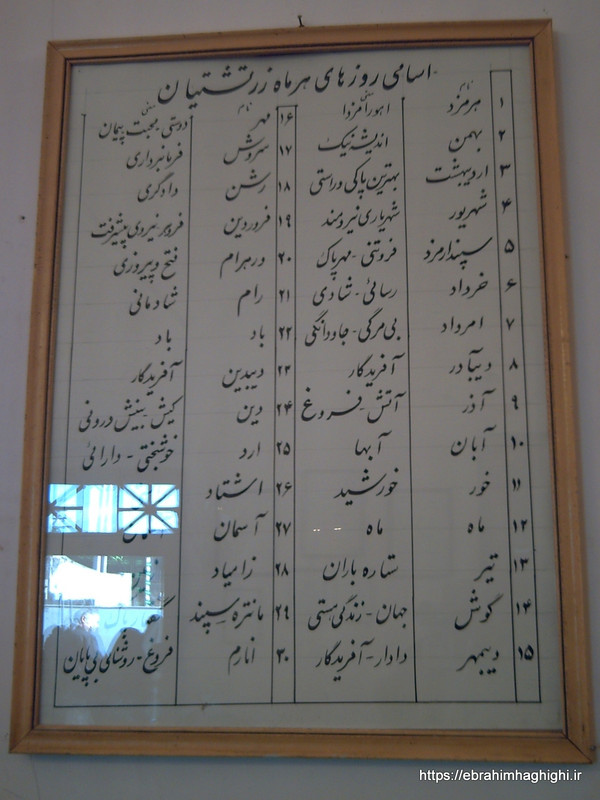 اسامی روزهای هر ماه زرتشتیان
نام معنی
۱ هرمزد اهورامزدا
۲ بهمن اندیشه نیک
۳ اردیبهشت بهترین پاکی و راستی
۴ شهریور شهریاری نیرومند
۵ سپندارمزد فروتنی - مهر پاک
۶ خرداد رسائی - شادی
۷ امرداد بی مرگی - جاودانگی
۸ دیبآدر آفریدگار
۹ آذر آتش - فروغ
۱۰ آبان آبها
۱۱ خور خورشید
۱۲ ماه ماه
۱۳ تیر ستاره باران
۱۴ گوش جهان - زندگی هستی
۱۵ دیبمهر دادار - آفریدگار
نام معنی
۱۶ مهر دوستی - محبت پیمان
۱۷ سروش فرمانبرداری
۱۸ رشن دادگری
۱۹ فروردین فروهر نیروی پیشرفت
۲۰ ورهرام فتح و پیروزی
۲۱ رام شادمانی
۲۲ باد باد
۲۳ دیبدین آفریدگار
۲۴ دین کیش - بینش درونی
۲۵ ارد خوشبختی - دارائی
۲۶ اشتاد
۲۷ آسمان
۲۸ زامیاد
۲۹ مانتره سپند
۳۰ انارم فروغ - روشنای بی پایان
https://ebrahimhaghighi.ir